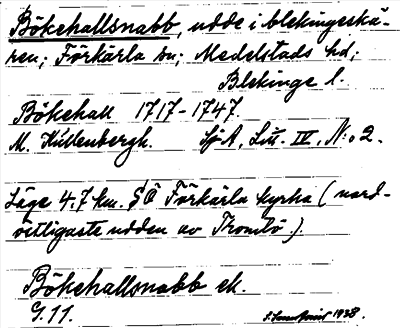 Bökehallsnabb, udde i blekingeskä-
ren; Förkärla sn; Medelstads hd;
Blekinge l.
Bökehall 1717-1747.
M. Hüllenbergh. Sj A, Litt. IV, N:o 2.
Läge 4.7 km. SÖ Förkärla kyrka (nord-
västligaste udden av Tromtö.).
Bökehallsnabb ek.
G.11. 1938.